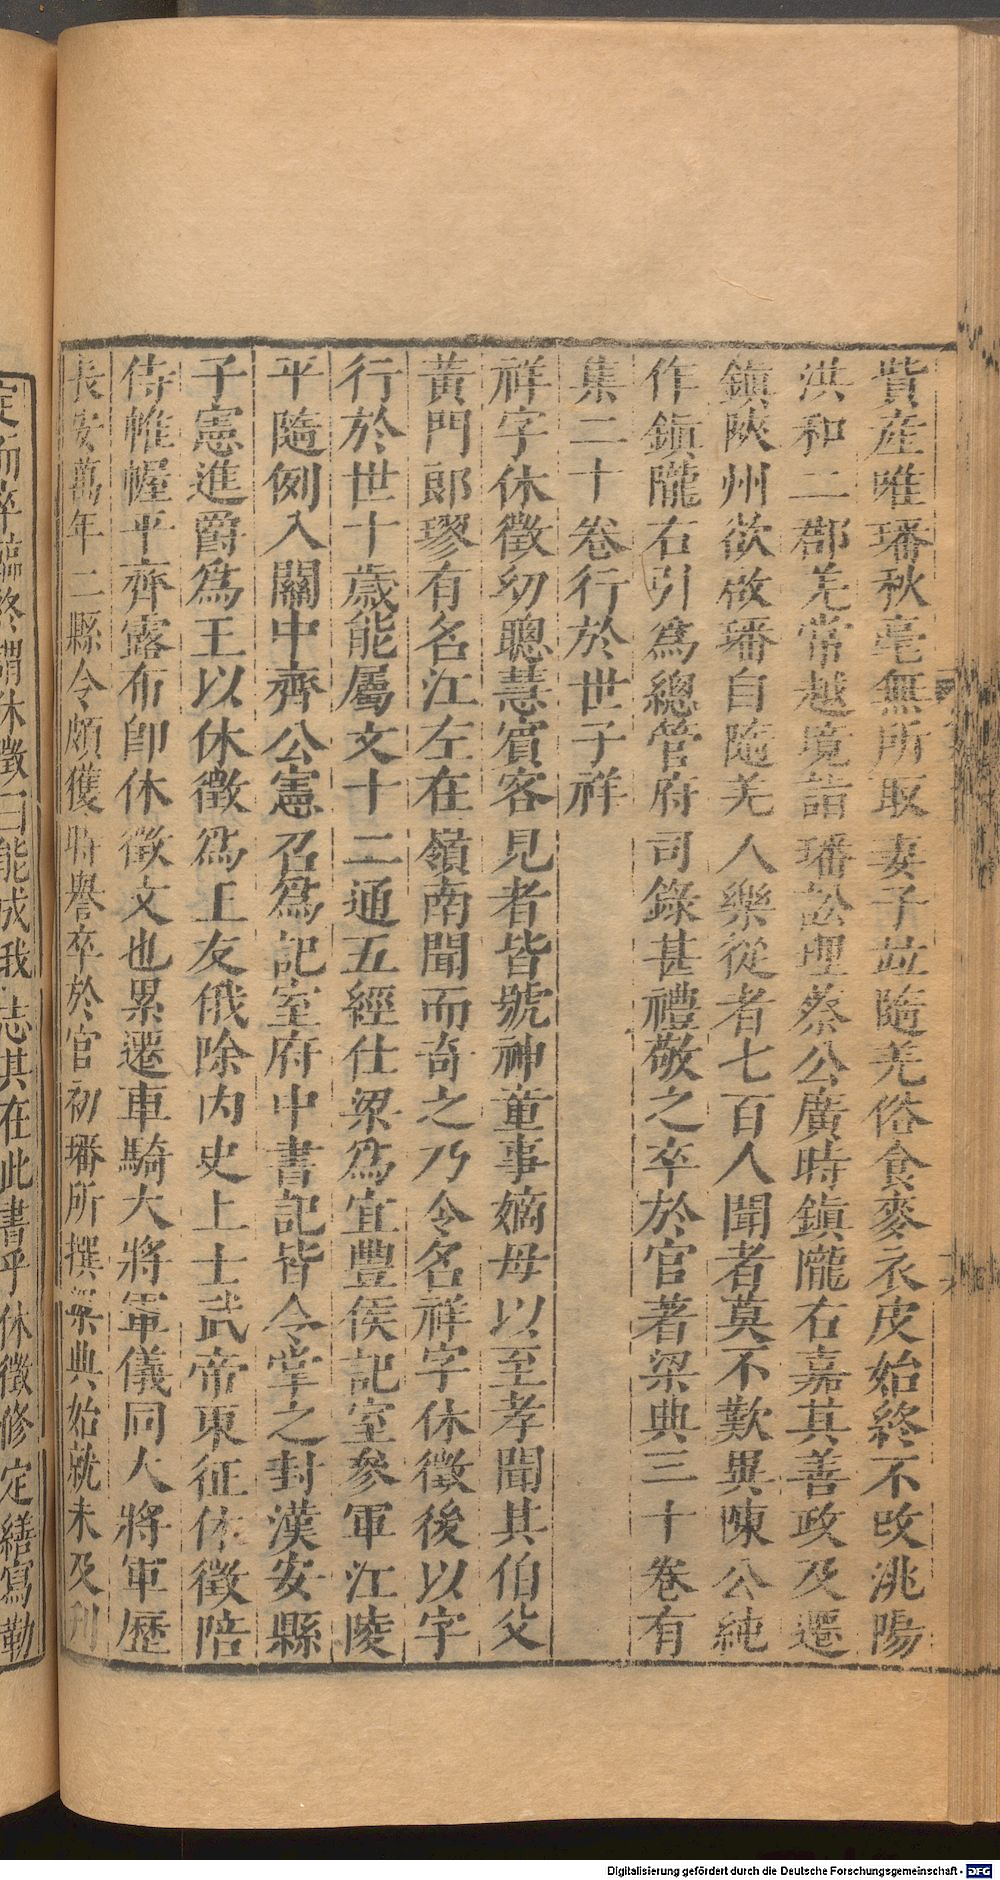 貲產唯璠秋毫無所取妻子竝隨羌俗食麥衣皮始終不改洮陽
洪和二郡羌常越境詣璠訟理蔡公廣時鎭隴右嘉其善政及遷
鎭陜州欲啟璠自隨羌人樂從者七百人聞者莫不歎異陳公純
作鎭隴右引爲總管府司錄甚禮敬之卒於官著梁典三十卷有
集二十卷行於世子祥
祥字休徵幼聰慧賓客見者皆號神童事嫡母以至孝聞其伯父
黃門郎璆有名江左在嶺南聞而奇之乃令名祥字休徵後以字
行於世十歲能屬文十二通五經仕梁爲宜豐侯記室參軍江陵
平隨例入關中齊公憲召爲記室府中書記皆令掌之封漢安縣
子憲進爵爲王以休徵爲王友俄除內史上士武帝東征休徵陪
侍帷幄平齊露布卽休徵文也累遷車騎大將軍儀同大將軍歷
長安萬年二縣令頗獲時譽卒於官初璠所撰梁典始就未及刋
定而卒臨終謂休徵曰能成我志其在此書乎休徵修定繕寫勒
Digitalisierung gefördert durch die Deutsche Forschungsgemeinschaft - DFG